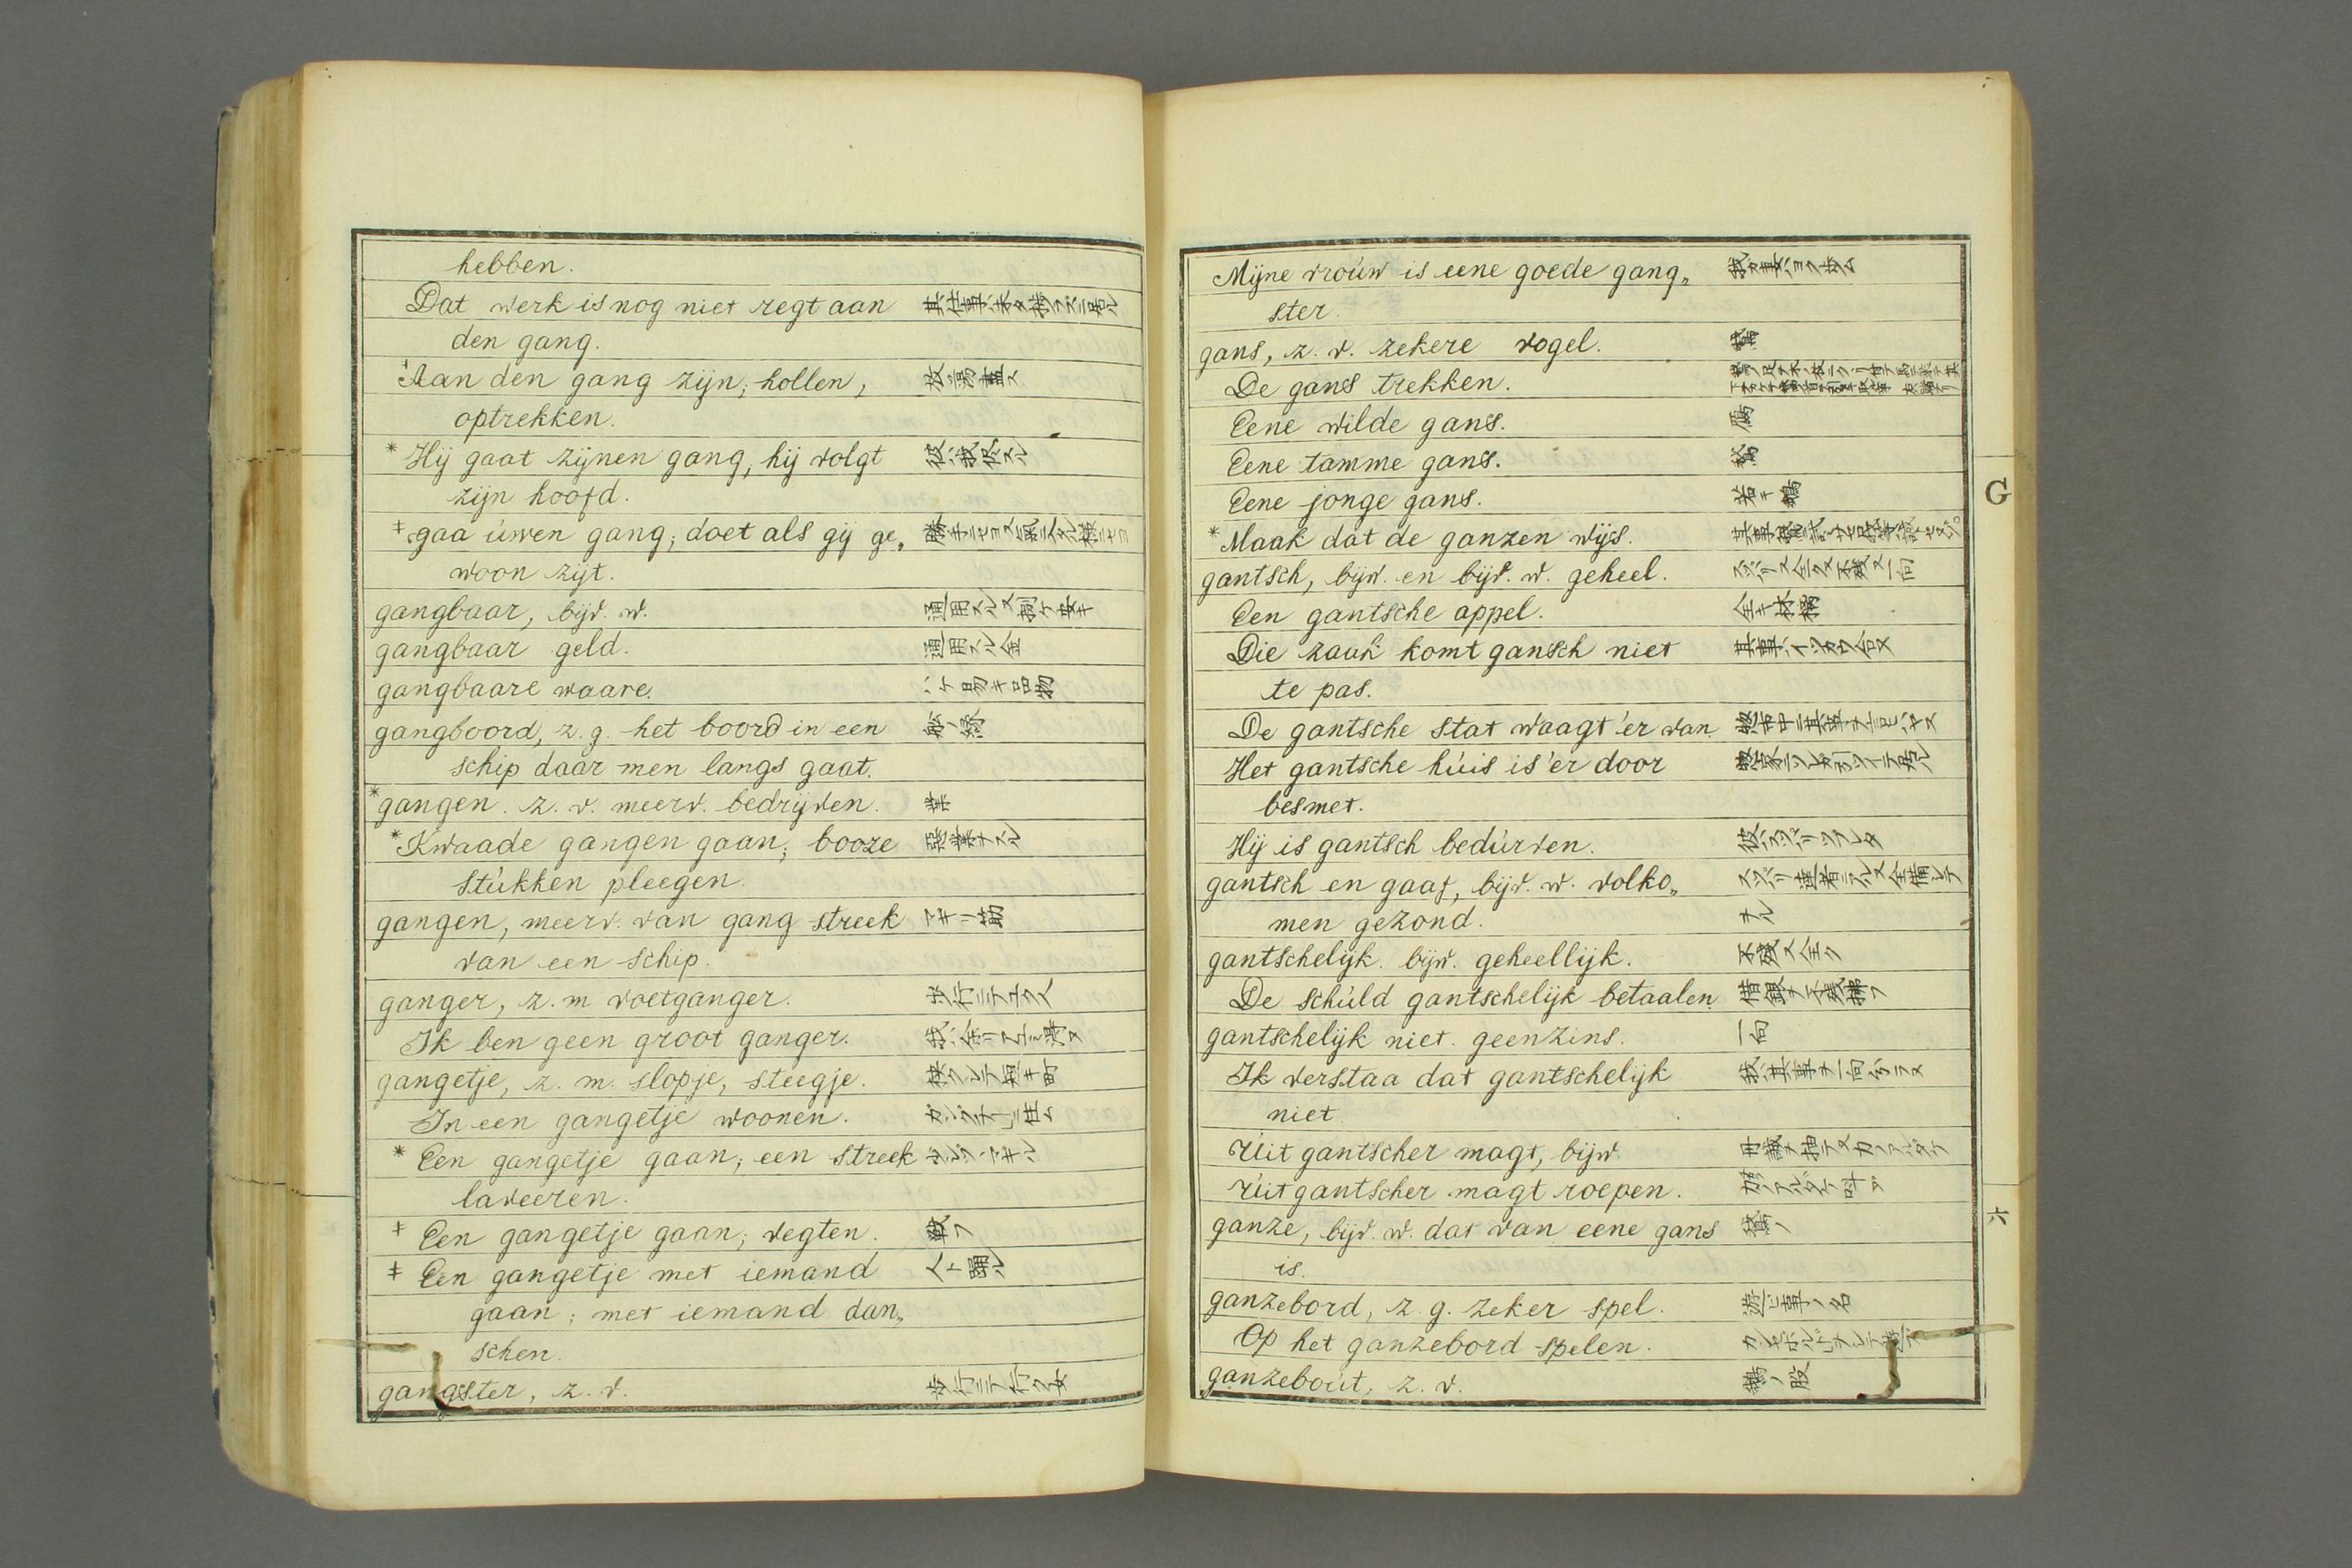 hebben.
Dat werk is nog niet regt aan 其仕事ハ未タ捗ラズニ居ル
den gang.
Aan den gang zijn; hollen, 放蕩盡ス
optrekken.
* Hij gaat zijnen gang, hij volgt 彼ハ我侭スル
zijn hoofd.
‡ gaa úwen gang; doet als gij ge„ 勝手ニセヨ
woon zijt.
gangbaar, bijv. w. 通用スル又捌ケ安キ
gangbaar geld. 通用スル金
gangbaare waare. ハケ易キ品物
gangboord, z. g. het boord in een 船ノ縁
schip daar men langs gaat.
* gangen. z. v. meerv. bedrijven. 業
* Kwaade gangen gaan; booze 惡業ヲスル
stúkken pleegen.
gangen, meerv. van gang streek マギリ筋
van een schip.
ganger, z. m voetganger. 歩行ニテユク人
Ik ben geen groot ganger. 我ハ余リアユミ得ヌ
gangetje, z. m. slopje, steegje. 狭クシテ短キ町
In een gangetje woonen. ニ住ム
* Een gangetje gaan; een streek 少シヅヽマギル
laveeren.
‡ Een gangetje gaan; vegten. 戦フ
‡ Een gangetje met iemand 人ト踊ル
gaan; met iemand dan„
schen.
gangster, z. v. 歩行ニテ行ク女
Mijne vroúw is eene goede gang„ 我カ妻ハヨク歩ム
ster.
gans, z. v. zekere vogel. 鵞
De gans trekken.
Eene wilde gans. 鴈
Eene tamme gans. 鵞
Eene jonge gans. 若キ鵞
* Maak dat de ganzen wijs.
gantsch, bijw. en bijv. w. geheel. スッパリ又全ク又不残又一向
Een gantsche appel. 全キ林檎
Die zaak komt gansch niet 其事ハ
te pas.
De gantsche stat waagt 'er van 惣市中
Het gantsche húis is 'er door 惣家
besmet.
Hij is gantsch bedúrven. 彼ハスッパリツブレタ
gantsch en gaaf, bijv. w. volko„ スッパリ達者ニアル又全備シテ
men gezond. ヲル
gantschelijk. bijw. geheellijk. 不殘又全ク
De schúld gantschelijk betaalen 借銀ヲ不残拂フ
gantschelijk niet. geenzins. 一向
Ik verstaa dat gantschelijk 我ハ其事ヲ一向
niet.
Uit gantscher magt, bijw.
Uit gantscher magt roepen. 力ノアルダケ叫フ
ganze, bijv. w. dat van eene gans 鵞ノ
is.
ganzebord, z. g. zeker spel. 遊ヒ事ノ名
Op het ganzebord spelen.
ganzeboút, z. v. 鵞ノ股
G
六